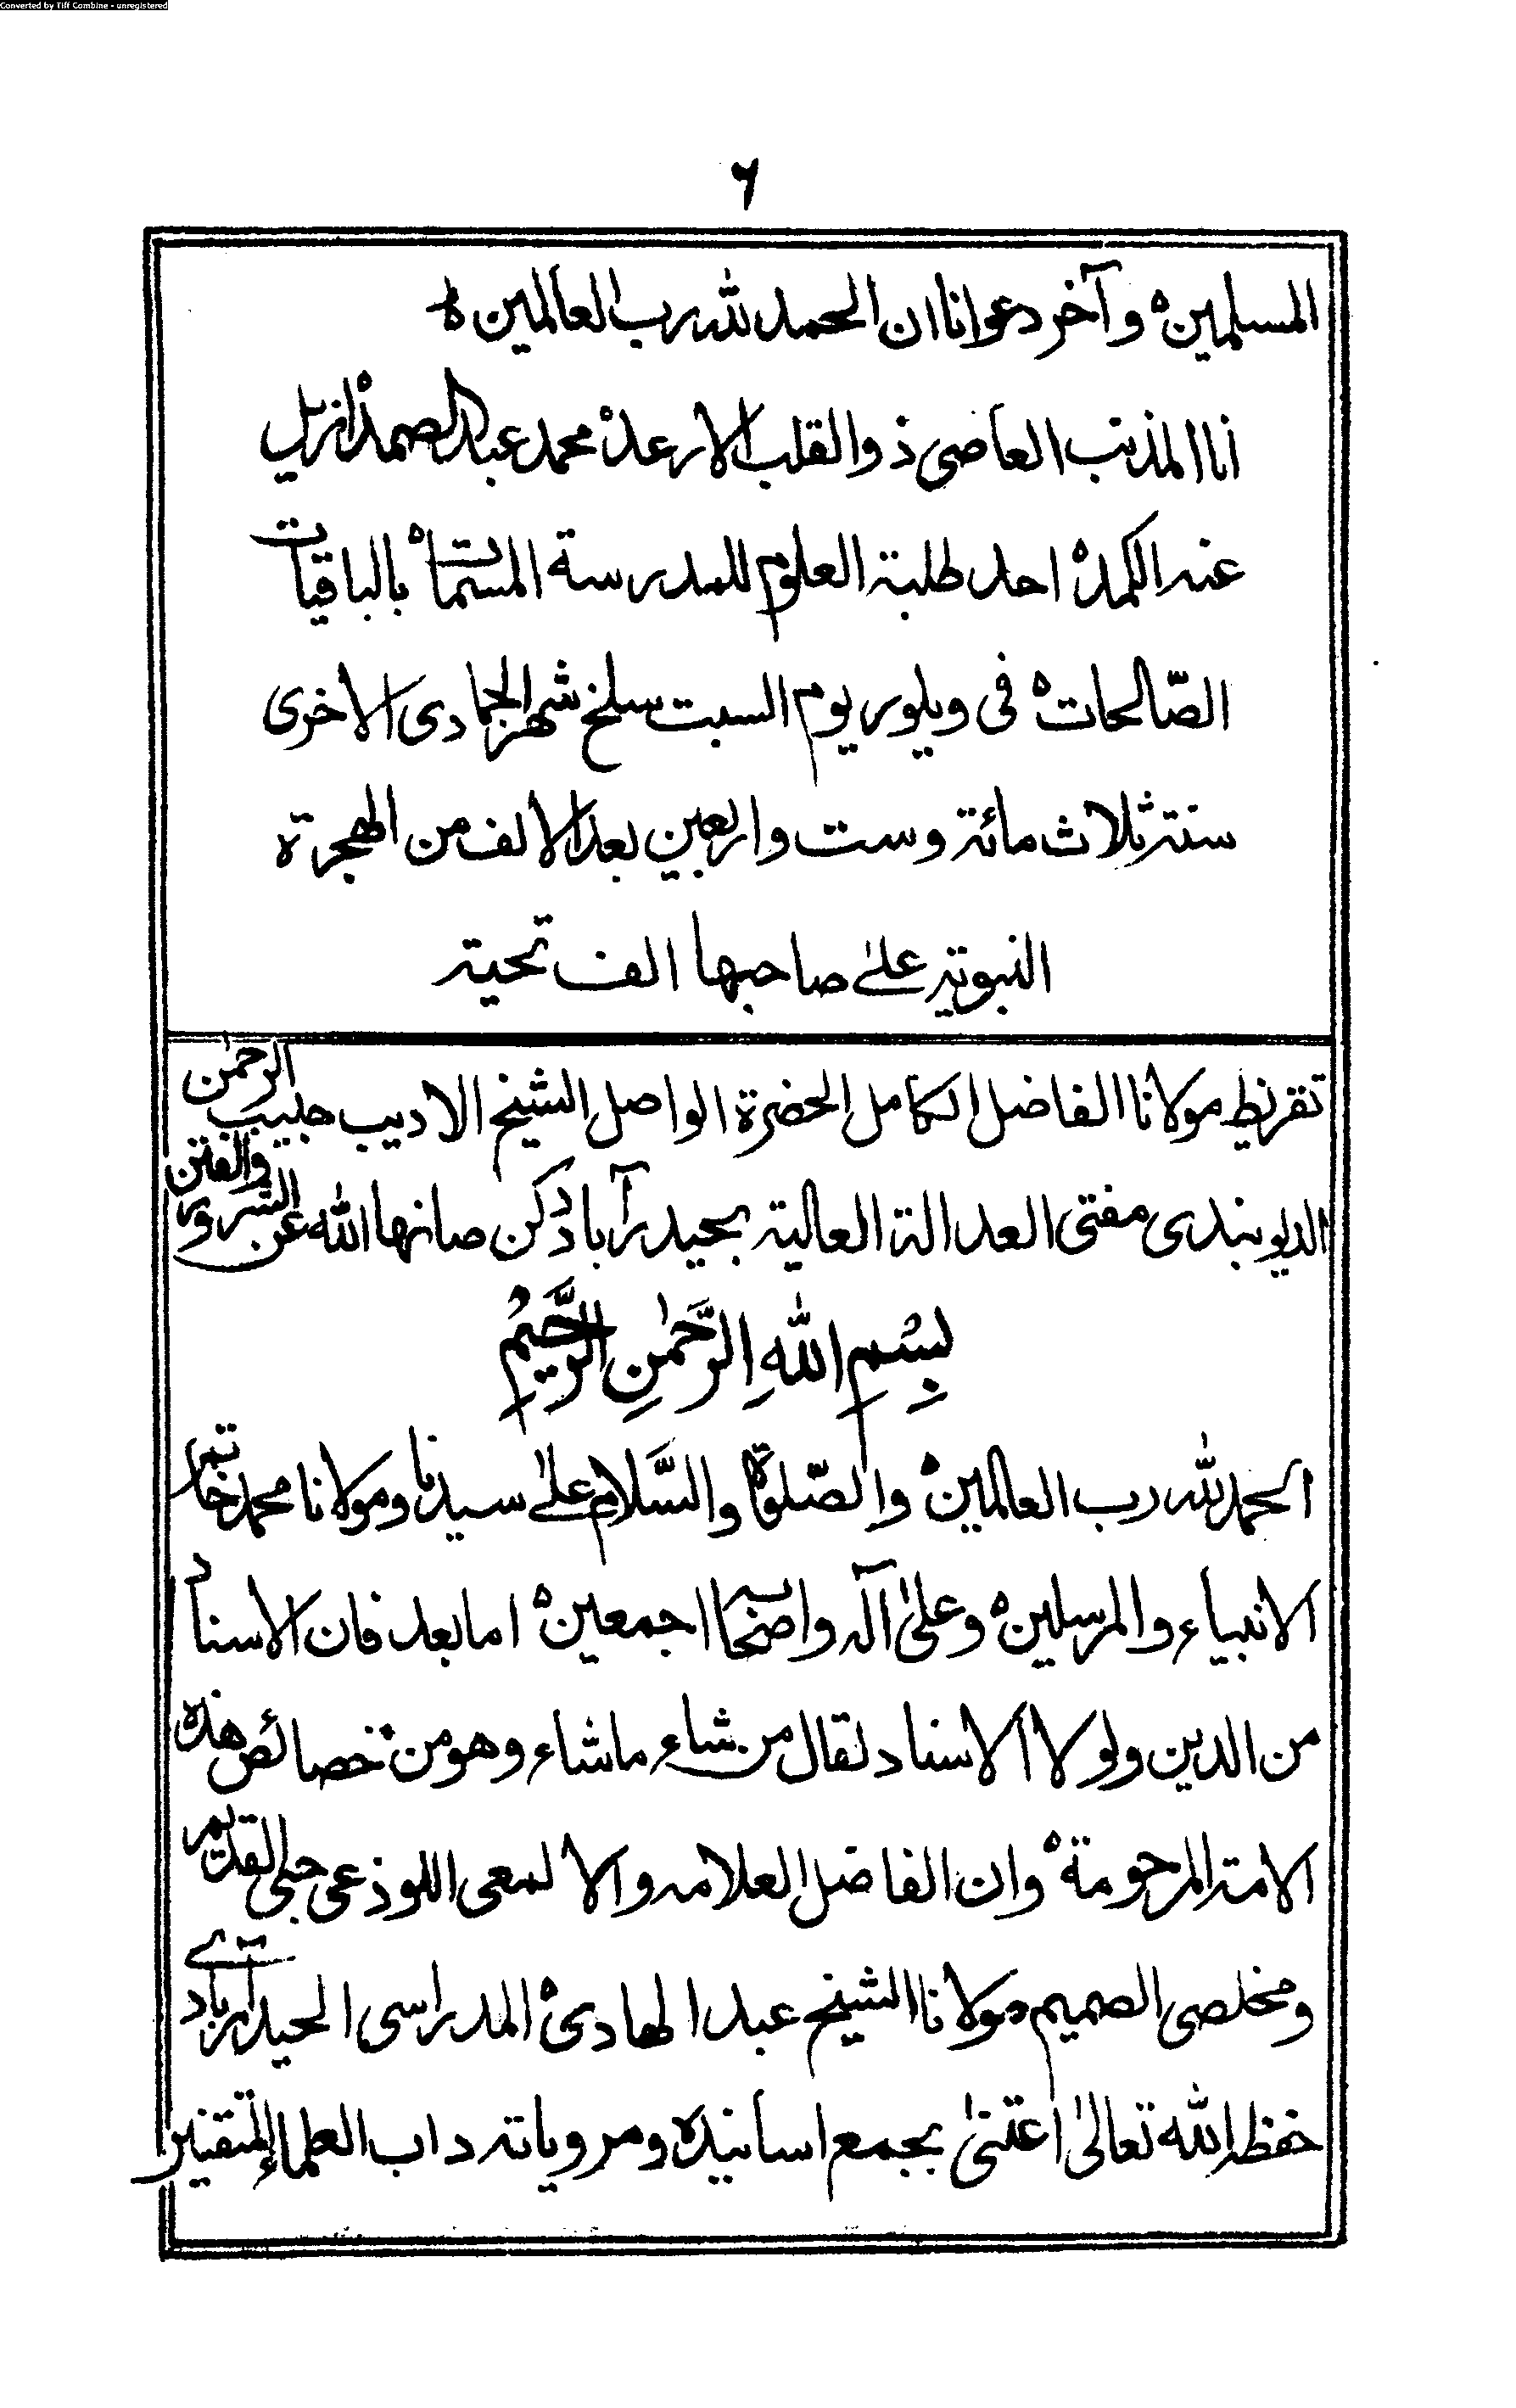 Converted by Tiff Combine - unregistered
٦
المسلمين٥ وآخر دعوانا ان الحمد لله رب العالمين ٥
انا المذنب العاصى ذو القلب الارعد٥ محمد عبد الصمد٥ ازيل
عنه الكمد٥ احد طلبة العلوم للمدرسة المسماة٥ بالباقيات
الصّالحات٥ فى ويلور يوم السبت سلخ شهر الجمادى الاخرى
سنة ثلاث مائة وست واربعين بعد الالف من الهجرة
النبوية على صاحبها الف تحية
تقريظ مولانا الفاضل الكامل الحضرة الواصل الشيخ الاديب حبيب الرحمٰن
الديوبندى مفتى العدالة العالية بحيدرآباد دكن صانها الله عن الشرور والفتن
بِسْمِ اللهِ الرَّحْمٰنِ الرَّحِيْمِ
الحمد لله رب العالمين٥ والصّلوة والسَّلام علىٰ سيدنا ومولانا محمد خاتم
الانبياء والمرسلين٥ وعلىٰ آله واصحابه اجمعين٥ اما بعد فان الاسناد
من الدين ولولا الاسناد لقال من شاء ما شاء وهو من خصائص هذه
الامة المرحومة٥ وان الفاضل العلامه والالمعى اللوذعى حبى القديم
ومخلصى الصميم مولانا الشيخ عبد الهادى٥ المدراسى الحيدرآبادے
حفظه الله تعالىٰ اعتنىٰ بجمع اسانيده ومروياته داب العلماء المتقنين